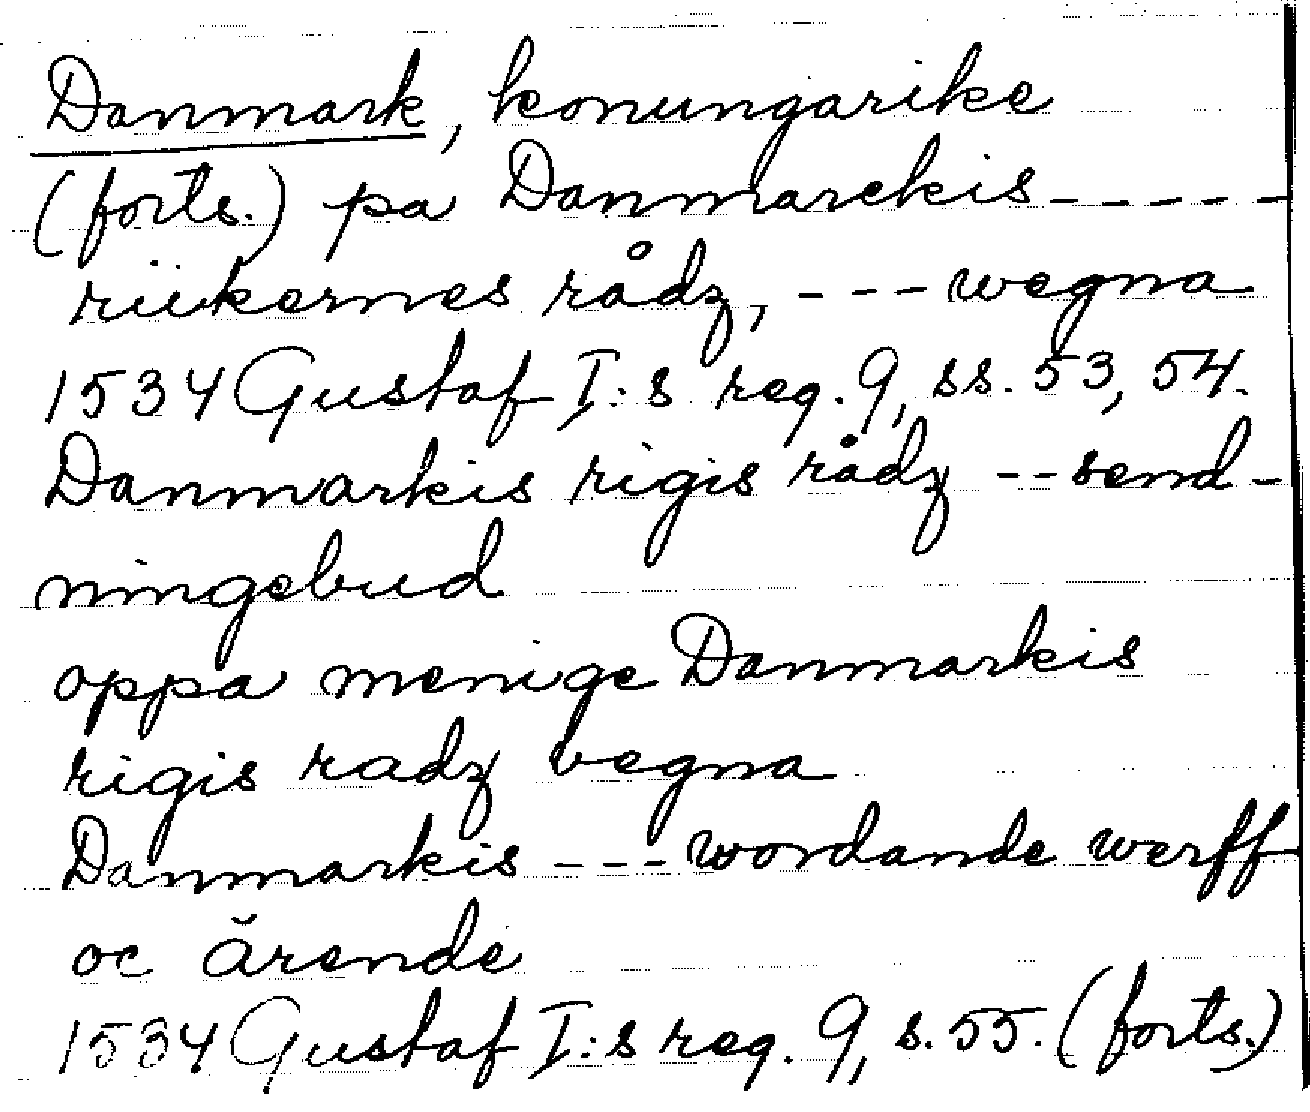 Danmark, konungarike
(forts.) pa Danmarckis-----
riikernes rådz, --- wegna
1534 Gustaf I:s reg. 9, ss. 53, 54.
Danmarkis rigis rådz -- send-
ningebud
oppa menige Danmarkis
rigis radz vegna
Danmarkis --- wordande werff
oc ärende
1534 Gustaf I:s reg. 9, s. 55. (forts.)